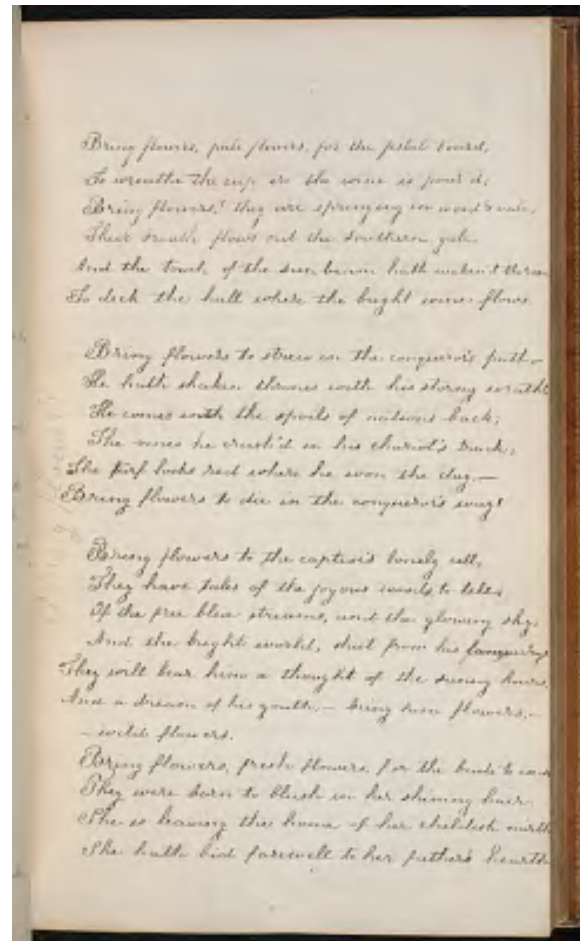 Bring flowers, pale flowers, for the festal board,
To wreathe the cup ere the wine is pour'd;
Bring flowers! they are springing in wood & vale,
Their breath flows out the Southern gale.
And the touch of the sun beam hath waken'd the rose
To deck the hall where the bright wine flows
Bring flowers to strew in the conqueror's path—
He hath shaken thrones with his stormy wrath
He comes with the spoils of nations back,
The vines lie crush'd in his chariot's track,
The turf looks red where he won the day.—
Bring flowers to die in the conqueror's way!
Bring flowers to the captive's lonely cell,
They have tales of the joyous woods to tell,
Of the free blue streams, and the glowing sky,
And the bright world, shut from his
They will bear him a thought of the sunny hours,
And a dream of his youth,— bring him flowers,—
— wild flowers.
Bring flowers, fresh flowers, for the bride to
They were born to blush in her shining hair.
She is leaving the home of her childish mirth
She hath bid farewell to her father's hearth